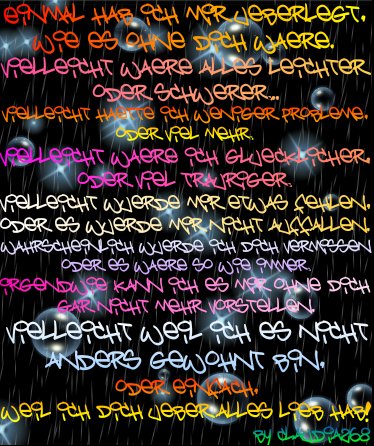 EINMAL HAB ICH MIR UEBERLEGT,
WIE ES OHNE DICH WAERE.
VIELLEICHT WAERE ALLES LEICHTER
ODER SCHWERER...
VIELLEICHT HAETTE ICH WENIGER PROBLEME.
ODER VIEL MEHR.
VIELLEICHT WAERE ICH GLUECKLICHER.
ODER VIEL TRAURIGER.
VIELLEICHT WUERDE MIR ETWAS FEHLEN.
ODER ES WUERDE MIR NICHT AUFFALLEN.
WAHRSCHEINLICH WUERDE ICH DICH VERMISSEN
ODER ES WAERE SO WIE IMMER.
IRGENDWIE KANN ICH ES MIR OHNE DICH
GAR NICHT MEHR VORSTELLEN.
VIELLEICHT WEIL ICH ES NICHT
ANDERS GEWOHNT BIN.
ODER EINFACH.
WEIL ICH DICH UEBER ALLES LIEB HAB!
BY CLAUDIA268